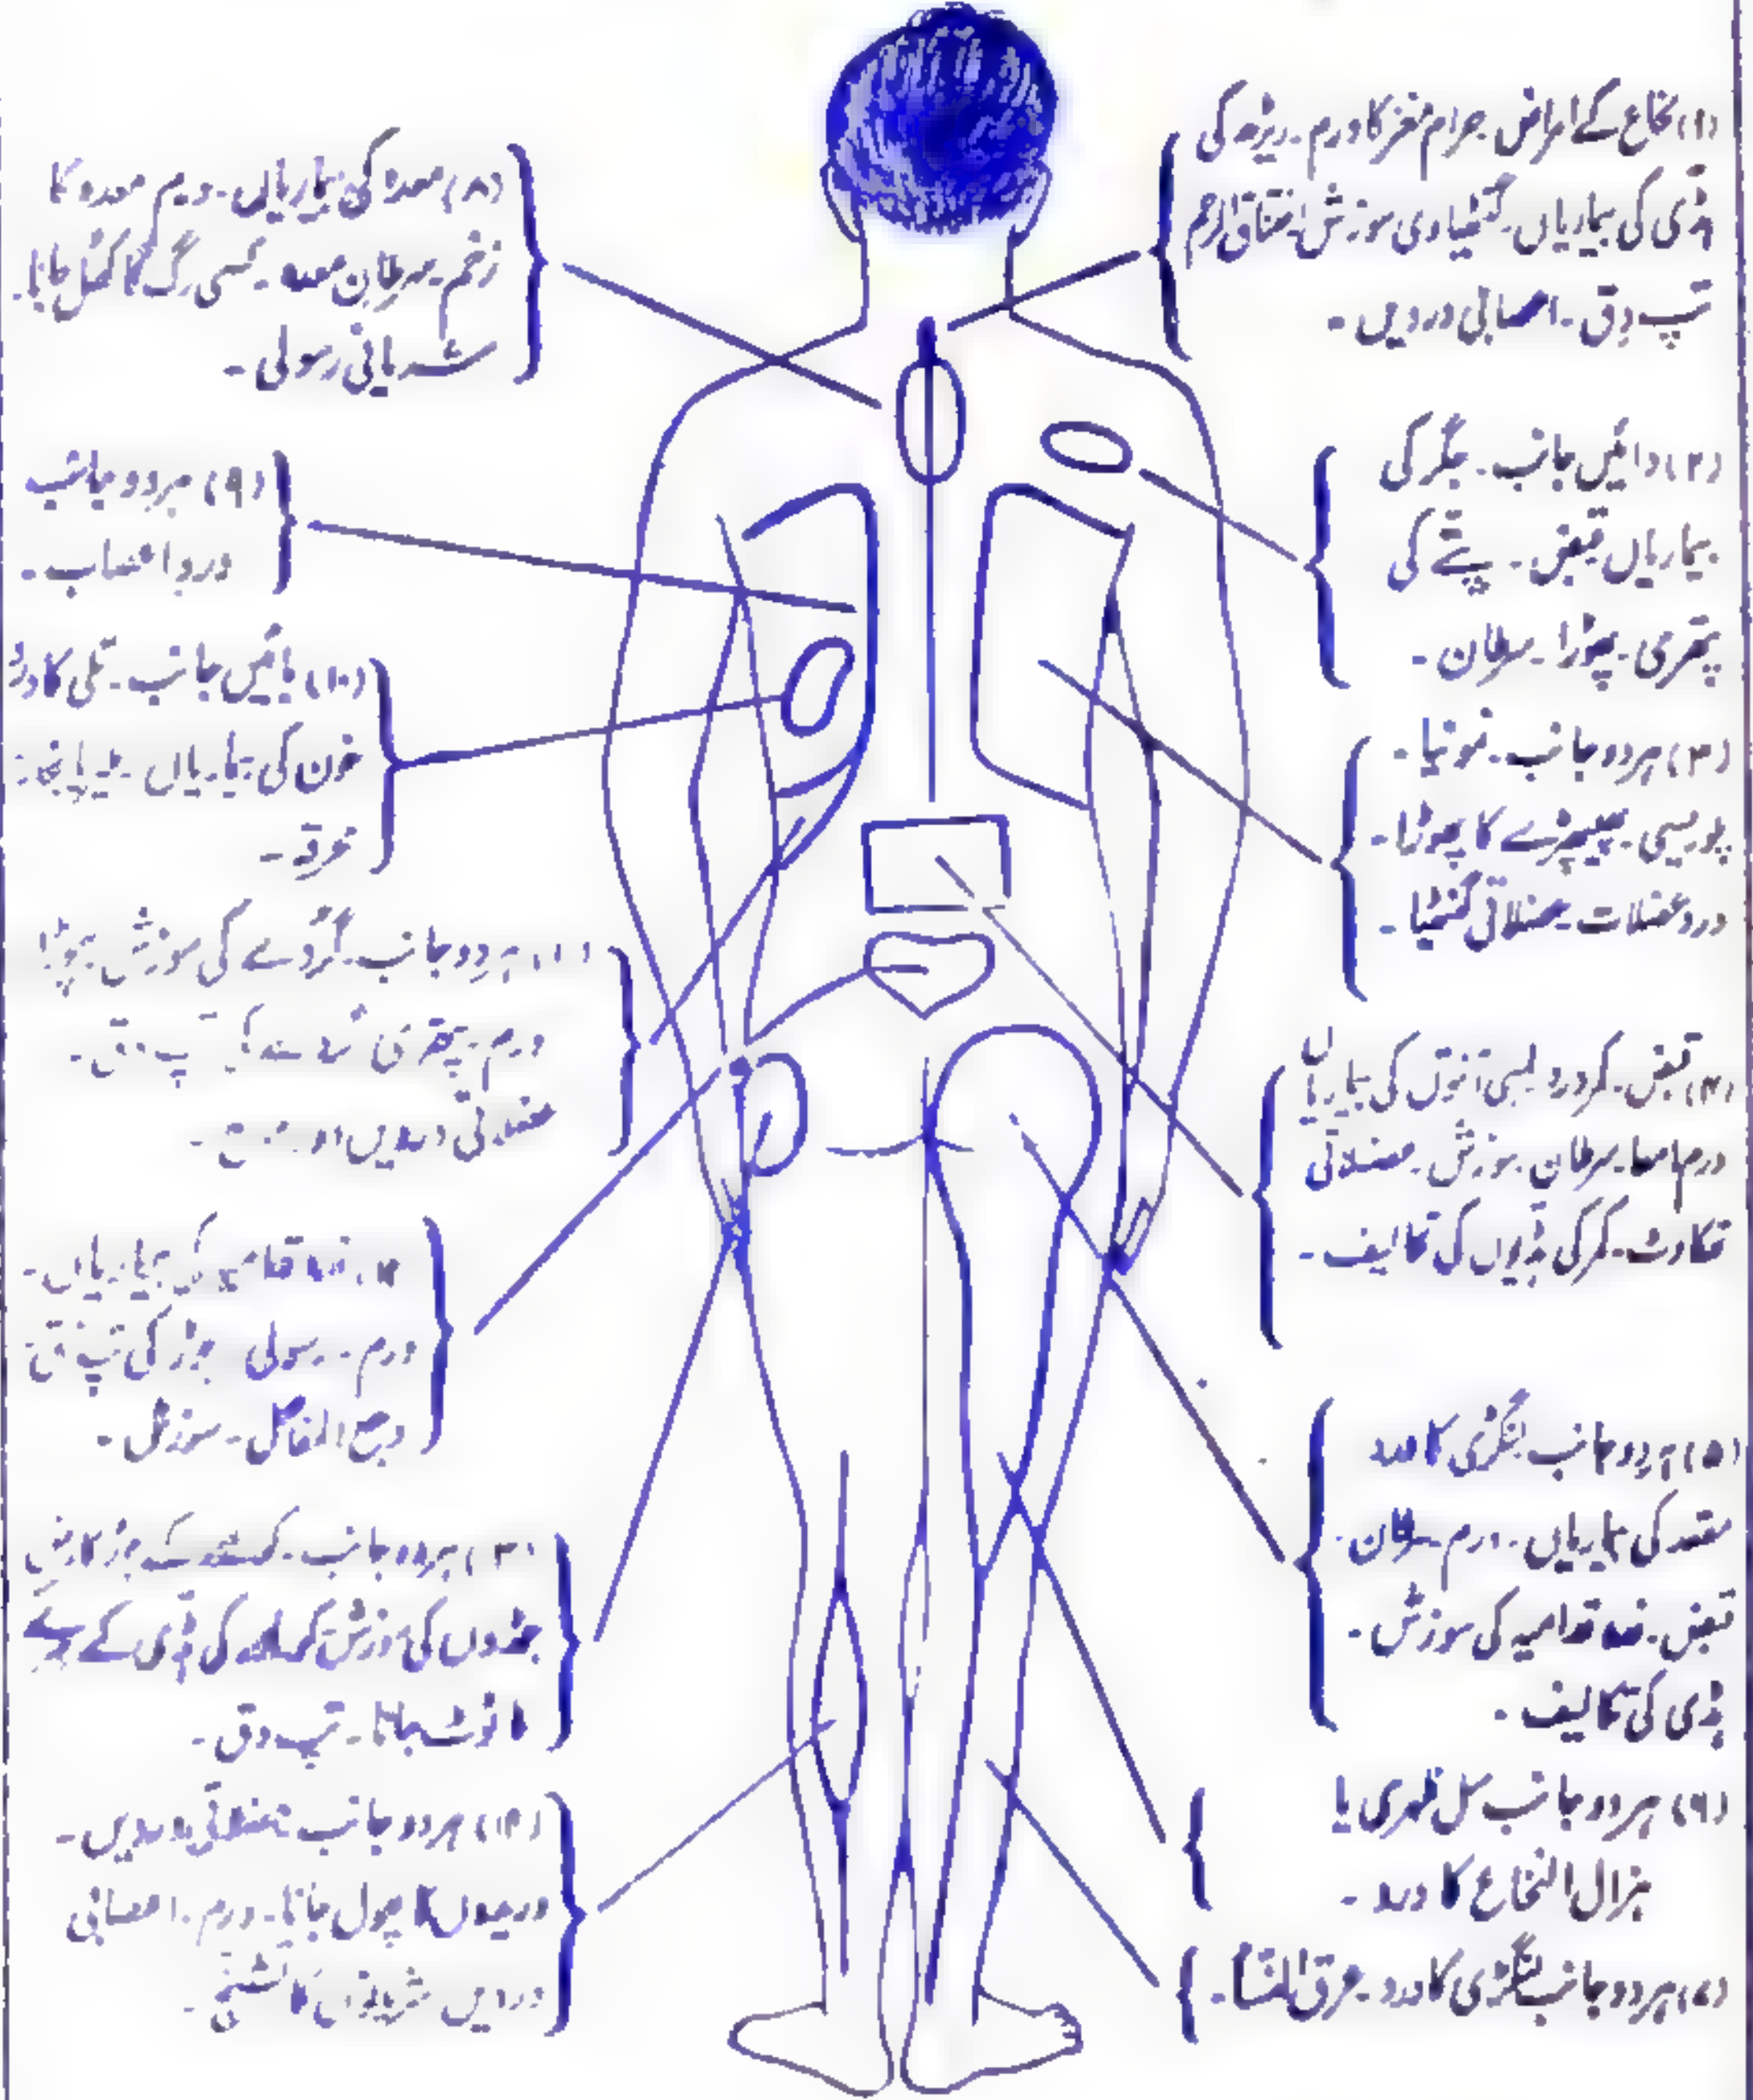 (۱) نخاع کے امراض۔ حرام مغز کا ورم۔ ریڑھ کی
ہڈی کی بیماریاں۔ گنٹھیاوی سوزش اختناق الرحم
تپ دق۔ اعصابی دردیں۔
(۲) دائیں جانب۔ جگر کی
بیماریاں قبض۔ پتے کی
پتھری۔ پھوڑا۔ سرطان۔
(۳) ہر دو جانب۔ نمونیا۔
پلوریسی۔ پھیپھڑے کا پھوڑا۔
درد عضلات۔ عضلاتی گنٹھیا۔
(۴) قبض۔ کمر درد لمبی آنتوں کی بیماریاں
ورم امعا۔ سرطان۔ سوزش۔ عضلاتی
تھکاوٹ۔ کمر کی ہڈیوں کی تکالیف۔
(۵) ہر دو جانب لنگڑی کا درد
مقعد کی بیماریاں۔ ورم۔ سرطان۔
قبض۔ غدہ قدامیہ کی سوزش۔
ہڈی کی تکالیف۔
(۶) ہر دو جانب سل ظہری یا
ہزال النخاع کا درد۔
(۷) ہر دو جانب لنگڑی کا درد۔ عرق النسا۔
(۸) معدہ کی بیماریاں۔ ورم معدہ کا
زخم۔ سرطان معدہ۔ کسی رگ کا کھل جانا۔
شریانی رسولی۔
(۹) ہر دو جانب
درد اعصاب۔
(۱۰) بائیں جانب۔ تلی کا درد
خون کی بیماریاں۔ ملیریا بخار
محرقہ۔
ہر دو جانب۔ گردے کی سوزش پھوڑا
ورم۔ پتھری گردے کی تپ دق۔
عضلاتی دردیں اور
غدہ قدامیہ کی بیماریاں۔
ورم۔ رسولی جوڑ کی تپ دق
وجع المفاصل۔ سوزش۔
ہر دو جانب۔ کے جوڑ کا
کی سوزش کی ہڈی کے
کا ٹوٹ جانا۔ تپ دق۔
(۱۴) ہر دو جانب عضلاتی دردیں۔
وریدوں کا پھول جانا۔ ورم۔ اعصابی
دردیں شریانوں کا تشنج۔